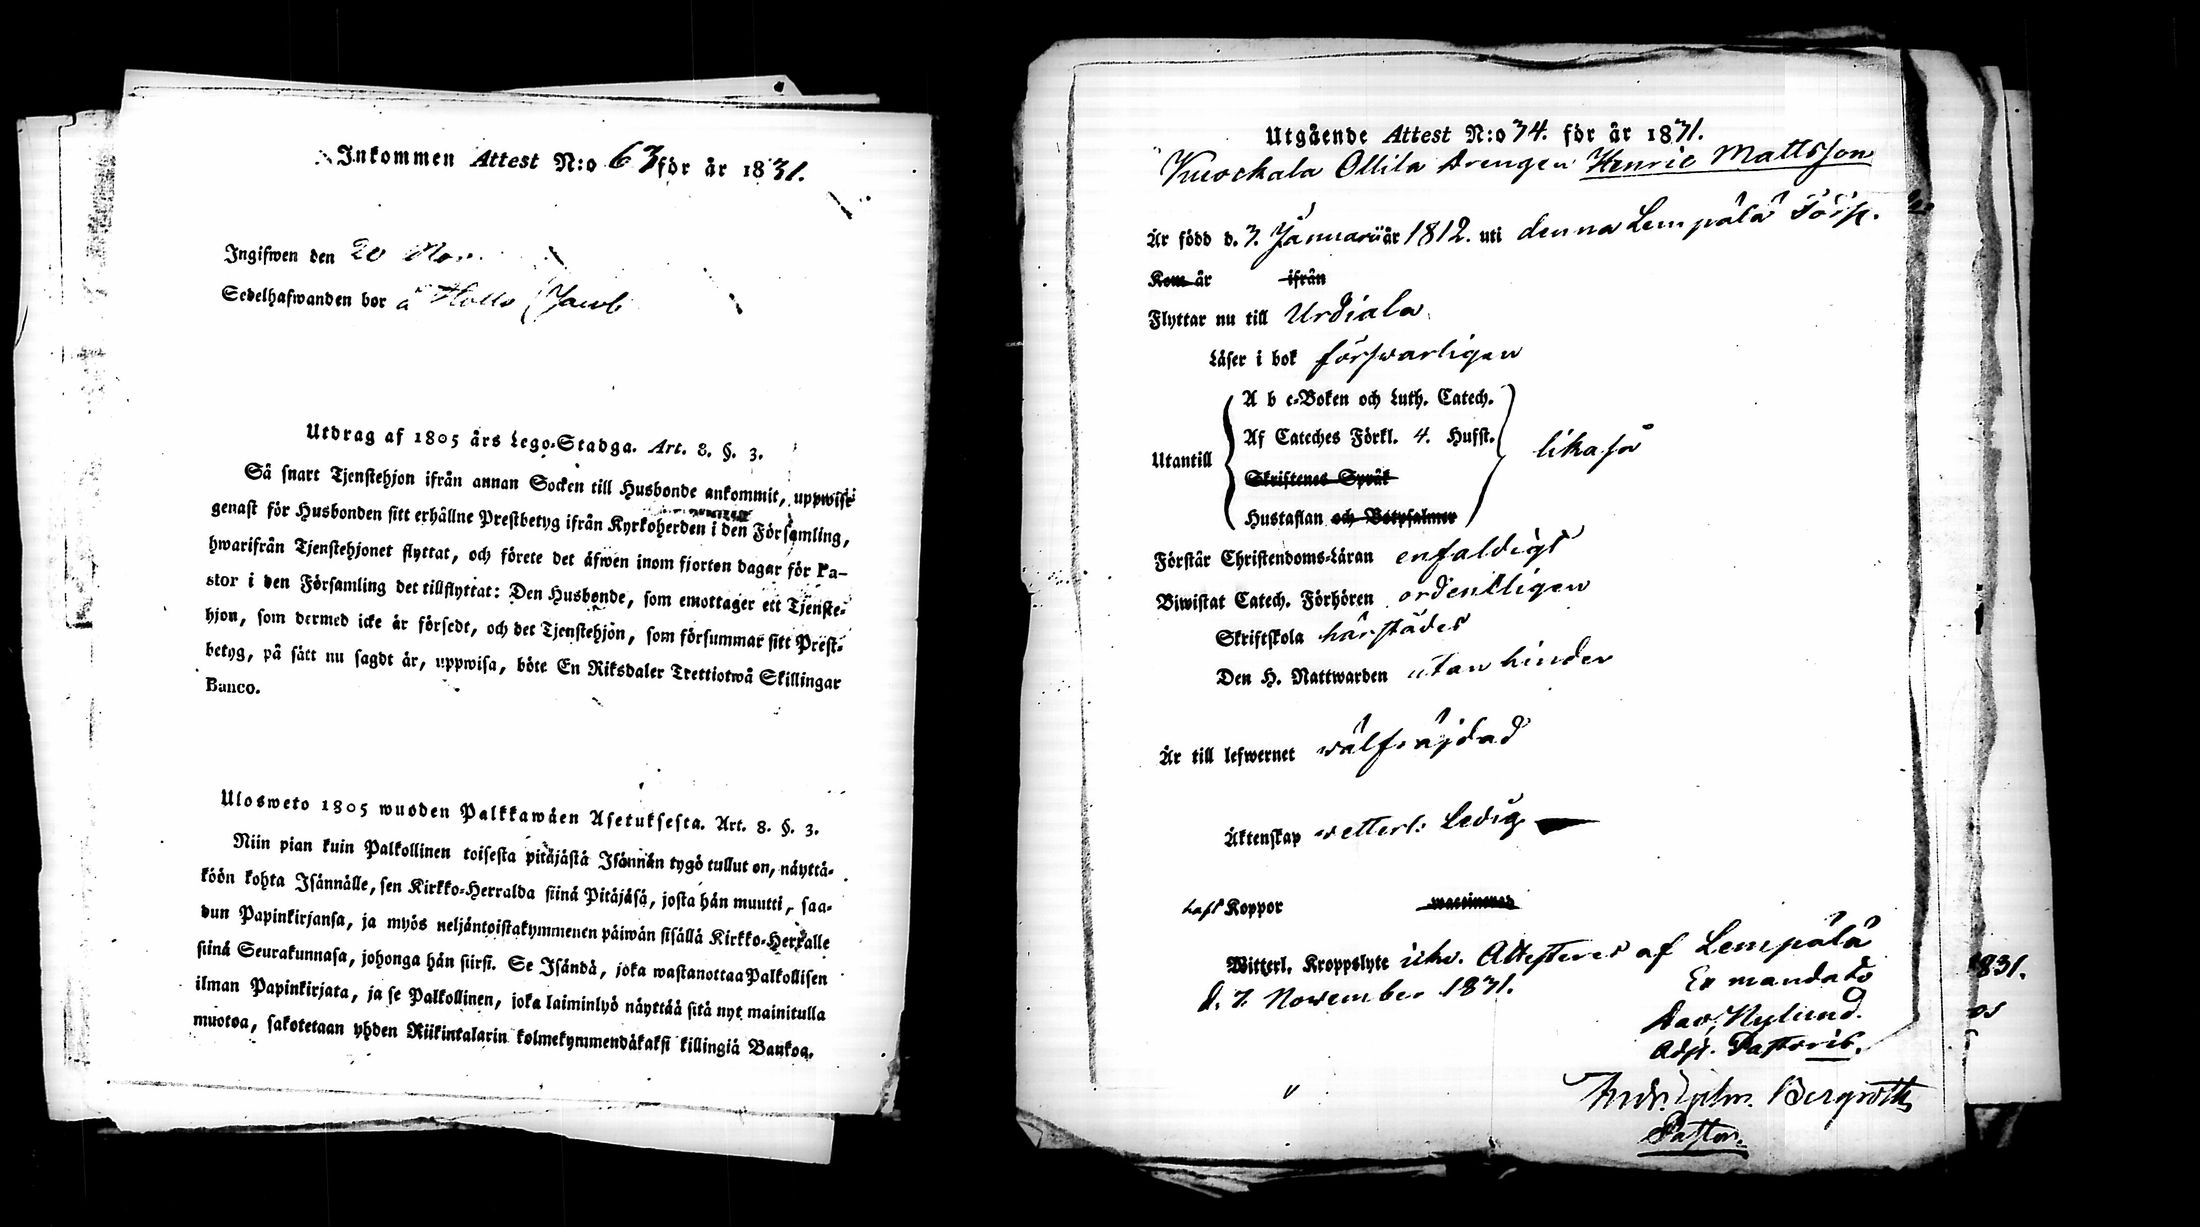 Inkommen Attest N:o 63 för år 1831.
Ingifwen den 20 Nov.
Sedelhafwanden bor å Hollo Jacob
Utdrag af 1805 års Lego-Stadga. Art. 8. §. 3.
Så snart Tjenstehjon ifrån annan Socken till Husbonde ankommit, uppwise
genast för Husbonden sitt erhållne Prestbetyg ifrån Kyrkoherden i den Församling,
hwarifrån Tjenstehjonet flyttat, och förete det äfwen inom fjorton dagar för Pa-
stor i den Församling det tillflyttat: Den Husbonde, som emottager ett Tjenste-
hjon, som dermed icke är försedt, och det Tjenstehjon, som försummar sitt Prest-
betyg, på sätt nu sagdt är, uppwisa, böte En Riksdaler Trettiotwå Skillingar
Banco.
Ulosweto 1805 wuoden Palkkawäen Asetuksesta. Art. 8. §. 3.
Niin pian kuin Palkollinen toisesta pitäjästä Isännän tygö tullut on, näyttä-
köön kohta Isännälle, sen Kirkko-Herralda siinä Pitäjäsä, josta hän muutti, saa-
dun Papinkirjansa, ja myös neljäntoistakymmenen päiwän sisällä Kirkko-Herralle
siinä Seurakunnasa, johonga hän siirsi. Se Isändä, joka wastanottaa Palkollisen
ilman Papinkirjata, ja se Palkollinen, joka laiminlyö näyttää sitä nyt mainitulla
muotoa, sakotetaan yhden Riikintalarin kolmekymmendäkaksi killingiä Bankoa.
Utgående Attest N:o 34. för år 1831.
Kuockala Ollila Drengen Henric Mattsson
Är född d. 3. Januarii år 1812. uti denna Lempälä Förs.
Kom år ifrån
Flyttar nu till Urdiala
Läser i bok förswarligen
A b c-Boken och Luth. Catech.
Af Cateches Förkl. 4. Hufst.
Utantill likaså
Skriftenes Språk
Hustaflan och Botpsalmer
Förstår Christendoms-Läran enfaldigt
Biwistat Catech. Förhören ordentligen
Skriftskola härstädes
Den H. Nattwarden utan hinder
Är till lefwernet wälfräjdad
Äktenskap wetterl: Ledig
haft Koppor vaccinerad
Witterl. Kroppslyte icke. Attesteres af Lempälä
d. 7. November 1831. Ex mandato
Dav. Nylund.
Adj. Pastoris.
Bergroth
Pastor.
1831.